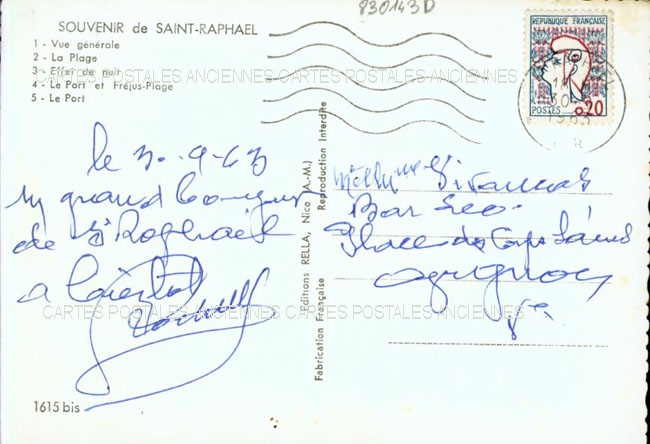 830143D
SOUVENIR de SAINT-RAPHAEL
1 - Vue générale
2 - La Plage
3 - Effet de nuit
4 - Le Port et Fréjus-Plage
5 - Le Port
CARTES POSTALES ANCIENNES CARTES POSTALES ANCIENNES
REPUBLIQUE FRANÇAISE
0,20
POSTES
le 3.-9-63
un grand bonjour
de St Raphaël
a bientôt
Bar
Place des
Avignon
CARTES POSTALES ANCIENNES CARTES POSTALES ANCIENNES
Fabrication Française Editions RELLA, Nice (A.-M.) Reproduction Interdite
1615 bis